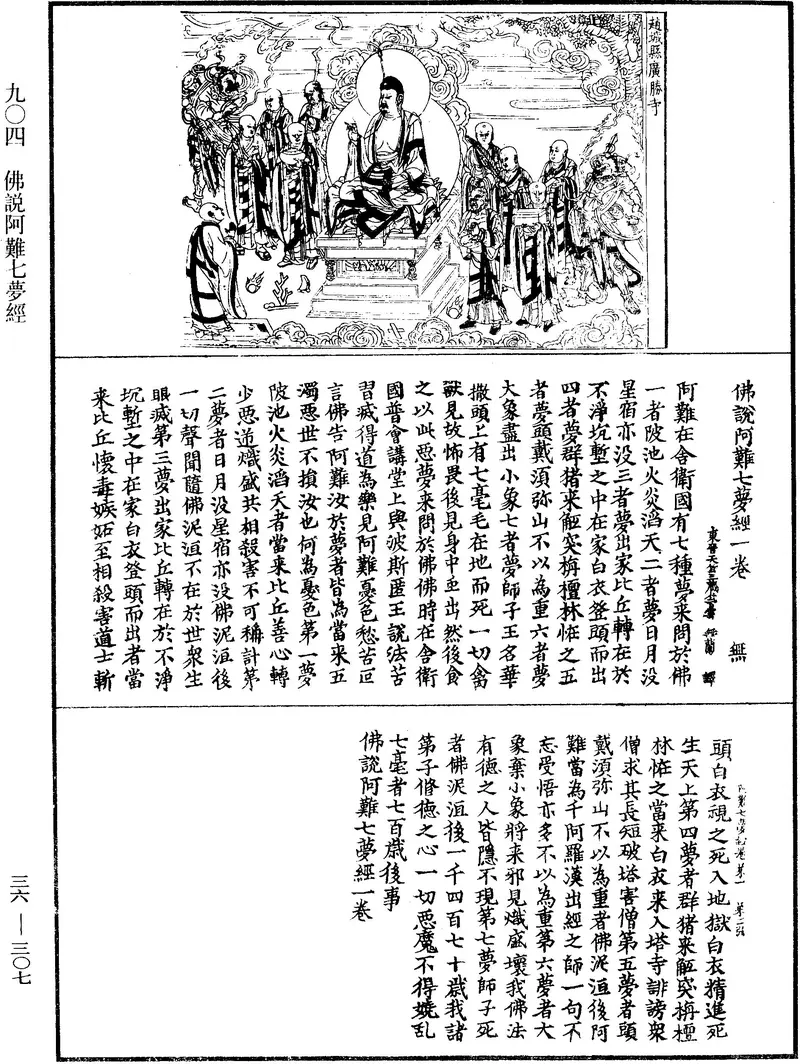 趙城縣廣勝寺
九〇四　佛説阿難七夢經
佛說阿難七夢經一卷　無
東晉天竺三藏竺曇無蘭譯
阿難在舍衛國有七種夢来問於佛
一者陂池火炎滔天二者夢日月没
星宿亦没三者夢出家比丘轉在於
不淨坑塹之中在家白衣登頭而出
四者夢群猪来觝突栴檀林恠之五
者夢頭戴須弥山不以為重六者夢
大象盡出小象七者夢師子王名華
撒頭上有七毫毛在地而死一切禽
獸見故怖畏後見身中虫出然後食
之以此惡夢来問於佛佛時在舍衛
國普會講堂上與波斯匿王說法苦
習滅得道為樂見阿難憂色愁苦叵
言佛告阿難汝於夢者皆為當来五
濁惡世不損汝也何為憂色第一夢
陂池火炎滔天者當来比丘善心轉
少惡逆熾盛共相殺害不可稱計第
二夢者日月没星宿亦没佛泥洹後
一切聲聞隨佛泥洹不在於世衆生
眼滅第三夢出家比丘轉在於不淨
坑塹之中在家白衣登頭而出者當
来比丘懷毒嫉妬至相殺害道士斬
頭白衣視之死入地獄白衣精進死
生天上第四夢者群猪来觝突栴檀
林恠之當来白衣来入塔寺誹謗衆
僧求其長短破塔害僧第五夢者頭
戴須弥山不以為重者佛泥洹後阿
難當為千阿羅漢出經之師一句不
忘受悟亦多不以為重第六夢者大
象棄小象將来邪見熾盛壞我佛法
有德之人皆隱不現第七夢師子死
者佛泥洹後一千四百七十歲我諸
弟子修德之心一切惡魔不得嬈乱
七毫者七百歲後事
佛說阿難七夢經一卷
三六 — 三〇七